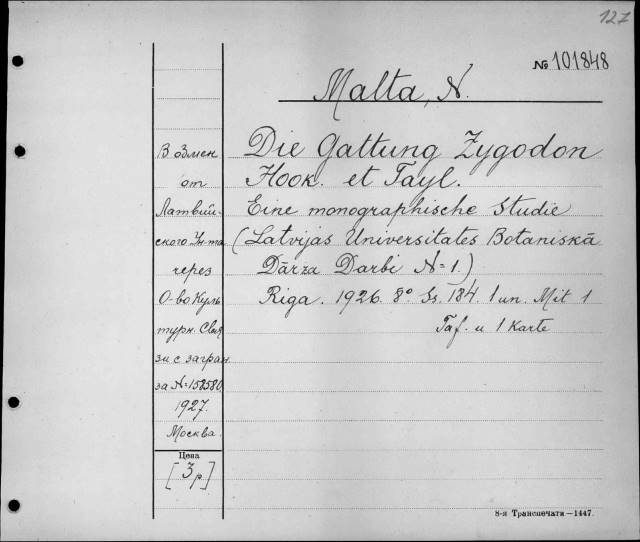 127
№ 101848
Malta, N.
В обмен
от
Латвий-
ского Ун-та
через
О-во Куль
турн. Свя
зи с загран.
за №158580
1927.
Москва.
Цена
[3р]
Die Gattung Zygodon
Hook. et Tayl.
Eine monographische Studie
(Latvijas Universitates Botaniskā
Dārza Darbi №1.)
Riga. 1926. 8° Ss. 184. 1 un. Mit 1
Taf. u 1 Karte
8-я Транспечати—1447.